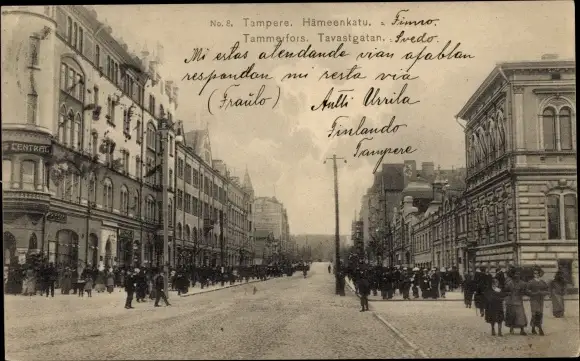 No. 8. Tampere. Hämeenkatu. - Finno.
Tammerfors. Tavastgatan. : Svedo.
Mi estas atendanda vian afablan
respondan mi resta via
(Fraŭlo) Antti Urrila
Finlando
Tampere
CENTRAL